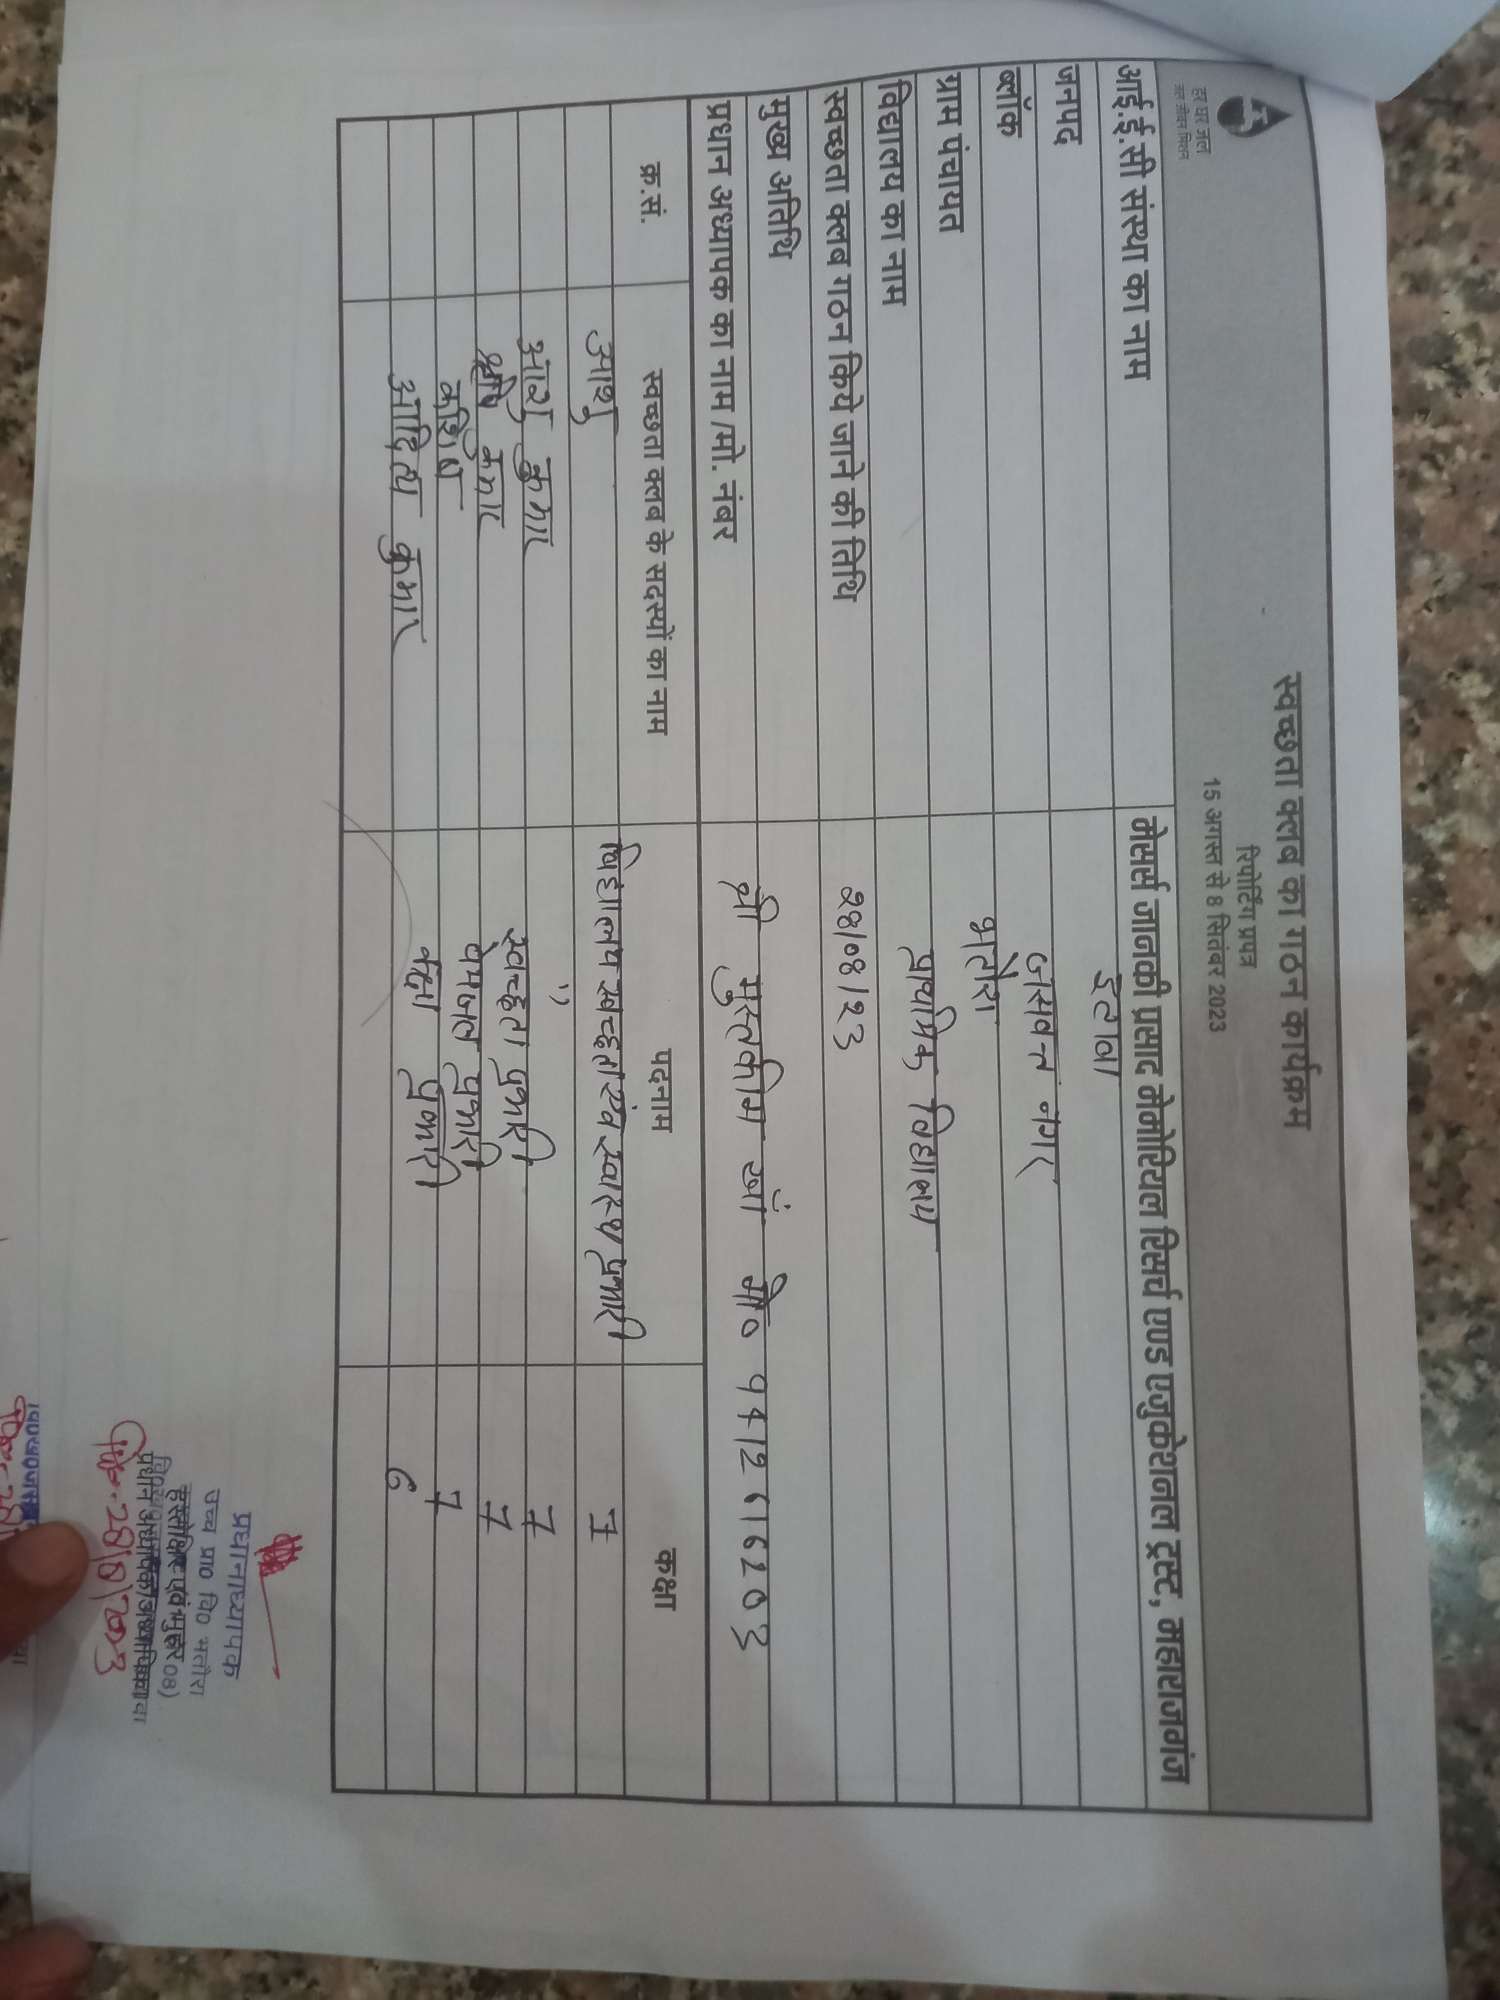 हर घर जल
जल जीवन मिशन
स्वच्छता क्लब का गठन कार्यक्रम
रिपोर्टिंग प्रपत्र
15 अगस्त से 8 सितंबर 2023
आई.ई.सी संस्था का नाम मेसर्स जानकी प्रसाद मेमोरियल रिसर्च एण्ड एजुकेशनल ट्रस्ट, महाराजगंज
जनपद इटावा
ब्लॉक जसवन्त नगर
ग्राम पंचायत भतौरा
विद्यालय का नाम प्राथमिक विद्यालय
स्वच्छता क्लब गठन किये जाने की तिथि 28/08/23
मुख्य अतिथि
प्रधान अध्यापक का नाम /मो. नंबर श्री मुस्तकीम खां मो० 9412616203
क्र.सं. स्वच्छता क्लब के सदस्यों का नाम पदनाम कक्षा
आशु विद्यालय स्वच्छता एंव स्वास्थ प्रभारी 7
आशु कुमार " 7
कुमार स्वच्छता प्रभारी 7
पेयजल प्रभारी 7
आदित्य कुमार कक्षा प्रभारी 6
प्रधानाध्यापक
उच्च प्रा० वि० भतौरा
हस्ताक्षर एवं मुहर
प्रधान अध्यापक/अध्यापिका